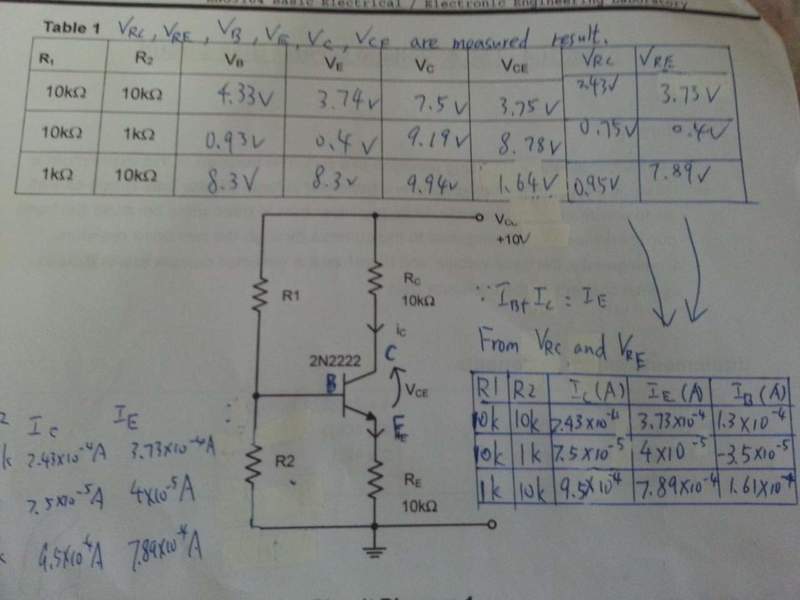 Basic Electrical / Electronic Engineering Laboratory
Table 1 VRC, VRE, VB, VE, VC, VCE are measured result.
R1 R2 VB VE VC VCE VRC VRE
10kΩ 10kΩ 4.33V 3.74V 7.5V 3.75V 2.43V 3.73V
10kΩ 1kΩ 0.93V 0.4V 9.19V 8.78V 0.75V 0.4V
1kΩ 10kΩ 8.3V 8.3V 9.94V 1.64V 0.95V 7.89V
+10V
R1
RC
10kΩ
iC
2N2222
C
B
VCE
E
R2
RE
10kΩ
∵ IB+ IC = IE
From VRC and VRE
R1 R2 IC(A) IE(A) IB(A)
10k 10k 2.43x10⁻⁴ 3.73x10⁻⁴ 1.3x10⁻⁴
10k 1k 7.5x10⁻⁵ 4x10⁻⁵ -3.5x10⁻⁵
1k 10k 9.5x10⁻⁴ 7.89x10⁻⁴ 1.61x10⁻⁴
2 IC IE
k 2.43x10⁻⁴A 3.73x10⁻⁴A
7.5x10⁻⁵A 4x10⁻⁵A
9.5x10⁻⁴A 7.89x10⁻⁴A